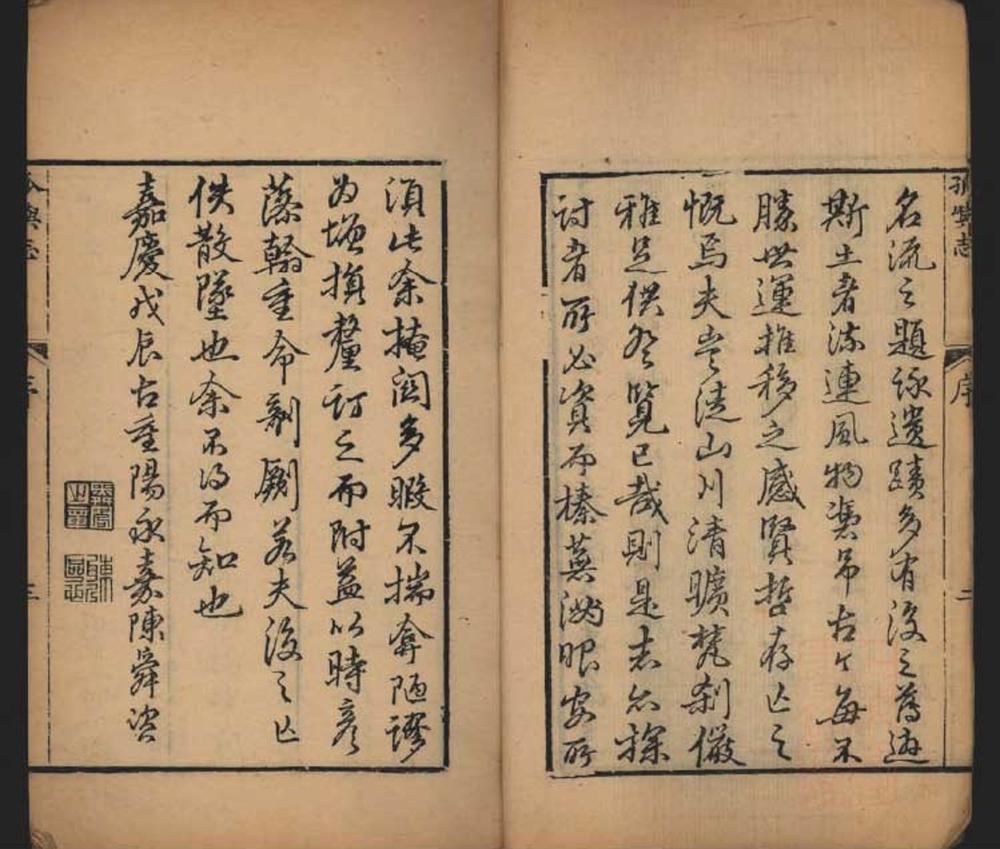 孤嶼志
序
二
名流之題詠遺蹟多有後之薦遊
斯土者流連風物憑弔古今每不
勝世運推移之感賢哲存亡之
慨焉夫豈徒山川清曠梵刹儼
雅足供登覽已哉則是志亦探
討者所必資而榛蕪滿眼安所
須此余掩關多暇不揣弇陋謬
為增損釐訂之而附益以時彥
藻翰重命剞劂若夫後之亡
佚散墜也余不得而知也
嘉慶戊辰古重陽永嘉陳舜咨
孤嶼志
序
三